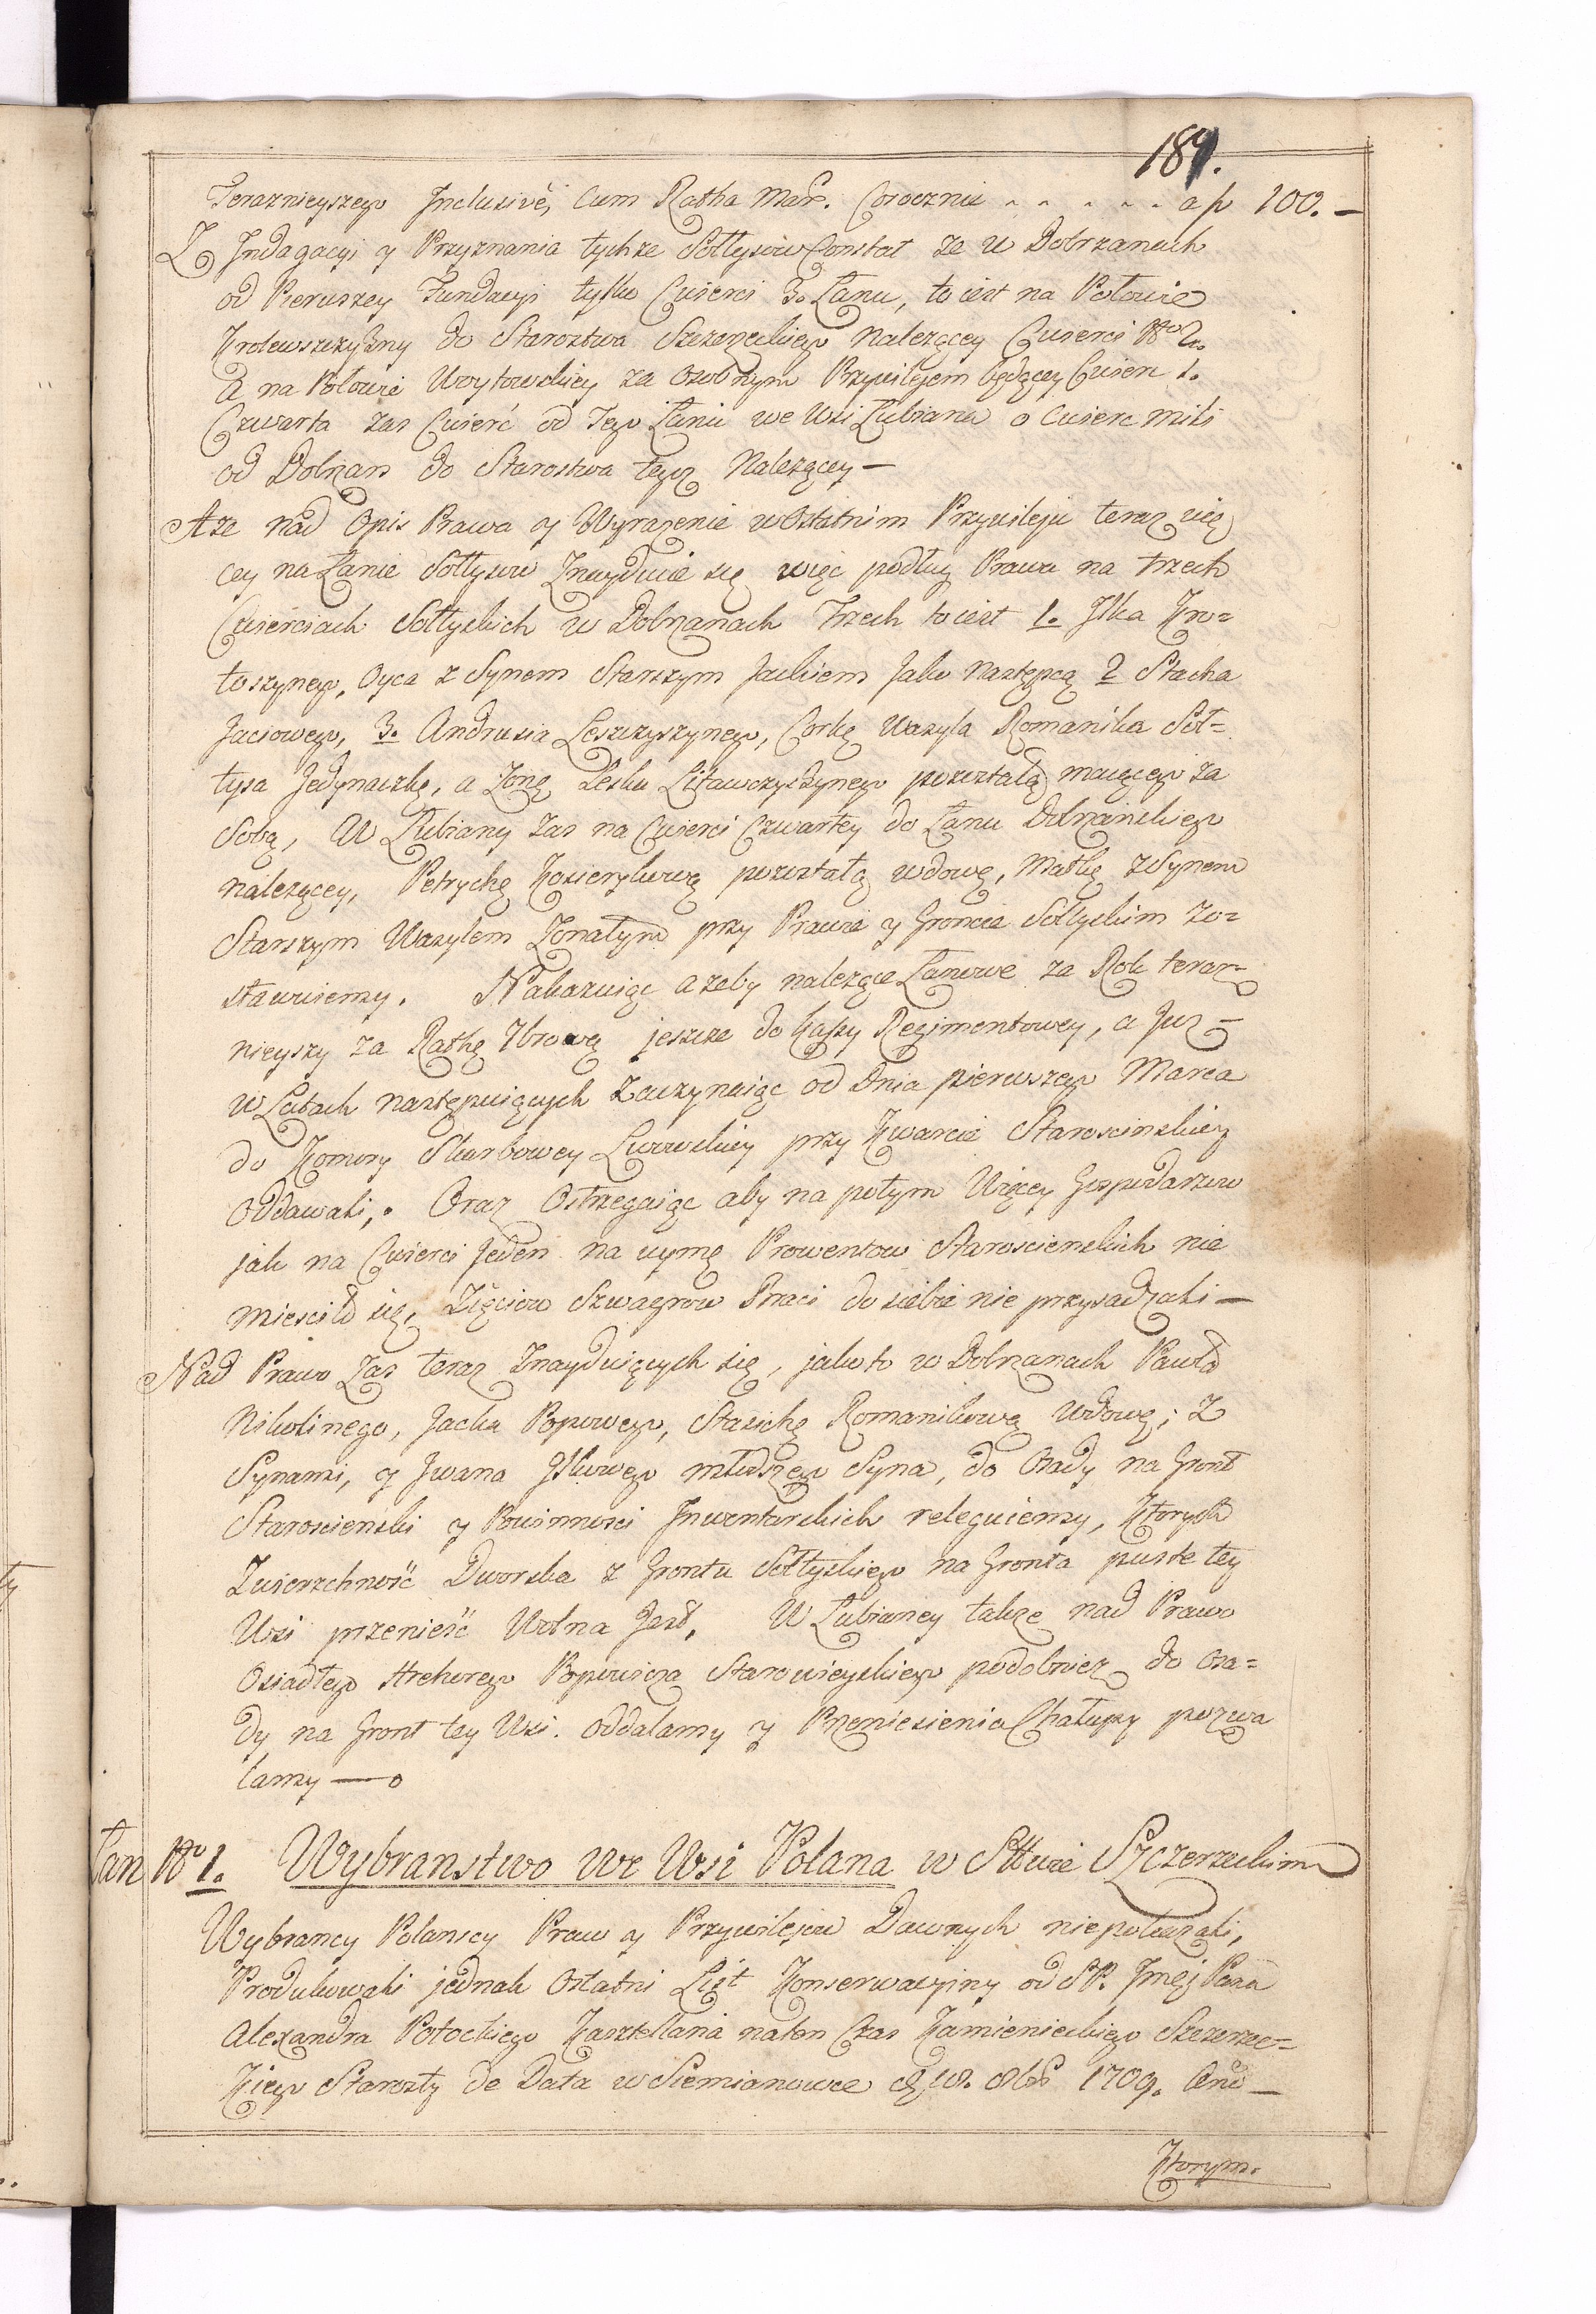 181.
Teraznieyszego Inclusivè, Cum Ratha Mar. Corocznie - - - - - - a p 100. —
Z Indagacyi y Przyznania tychze Sołtysow Constat ze w Dobrzanach
od Pierwszey Fundacyi tylko Cwierci 3. Łanu, to iest na Połowie
Krolewszczyzny do Starostwa Szczerzeckiego Nalezącey Cwierci No 2.
A na Połowie Woytowskiey za osobnym Przywilejem będącey Cwierc 1.
Czwarta zas Cwierć od Tego Łanu we Wsi Łubiana o Cwierc mili
od Dobrzan do Starostwa tegoz Nalezącey —
A ze nad Opis Prawa y Wyrazenie w Ostatnim Przywileju teraz wię
cey na Łanie Sołtysow Znayduie się więc podług Prawa na trzech
Cwierciach Sołtyskich w Dobrzanach Trzech to iest 1. Ilka Kro=
toszynego, Oyca z Synem Starszym Jackiem Jako Następcą 2 Stacha
Jaciowego, 3. Andrusia Leszczyszynego, Corkę Wasyla Romanika Soł=
tysa Jedynaczkę, a Zonę Leska Litawczyszynego pozostałą maiącego za
Sobą, W Łubiany zas na Cwierci Czwartey do Łanu Dobrzanskiego
nalezącey, Petrychę Kosierykową pozostałą wdowę, Matkę z Synem
Starszym Wasylem Zonatym przy Prawie y Groncie Sołtyskim zo=
stawuiemy. Nakazuiąc azeby nalezące Łanowe za Rok teraz=
nieyszy za Rathę 7brową jeszcze do Kassy Regimentowey, a Juz —
w Latach następuiących Zaczynaiąc od Dnia pierwszego Marca
do Komory Skarbowey Lwowskiey przy Kwarcie Starościnskiey
Oddawali,. Oraz Ostrzegaiąc aby na potym Więcey Gospodarzow
jak na Cwierci Jeden na uymę Prowentow Staroscienskich nie
miescił się, Zięciow Szwagrow Braci do siebie nie przysadzali —
Nad Prawo zas teraz Znayduiących się, jako to w Dobrzanach Pawła
Nikolinego, Jacka Popowego, Stasichę Romanikową Wdowę; Z
Synami, y Iwana Ilkowego młodszego Syna, do Osady na Gront
Staroscienski y Powinnosci Inwentarskich releguiemy, Ktorych
Zwierzchność Dworska z Grontu Sołtyskiego na Gronta puste tey
Wsi przenieść Wolna Jest, W Łubianey takze nad Prawo
Osiadłego Hrehorego Popowicza Starowieyskiego podobniez do Osa=
dy na Gront tey Wsi. Oddalamy y Przeniesienia Chałupy pozwa
lamy —o
Łan No 1. Wybranstwo we Wsi Polana w Sttwie Szczerzeckim
Wybrancy Polanscy Praw y Przywilejow Dawnych niepokazali,
Produkowali jednak Ostatni List Konserwacyiny od S P. Jmęj Pana
Alexandra Potockiego Kasztellana na ten Czas Kamienieckiego Szczerzec=
Kiego Starosty de Data w Siemianowce 8bris 1709. Anno —
Ktorym.